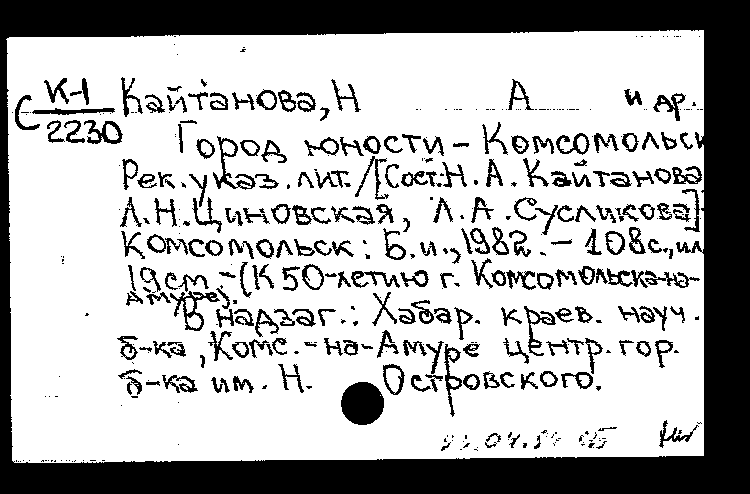 С К-1 Кайтанова, Н А и др.
2230
Город юности – Комсомольск
Рек. указ. лит. / [Сост. Н. А. Кайтанова
Л. Н. Циновская, Л. А. Сусликова]
Комсомольск: Б. и., 1982. – 108 с., ил
19 см – (К 50-летию г. Комсомольска-на-
Амуре).
В надзаг.: Хабар. краев. науч.
б-ка, Комс.-на-Амуре центр. гор.
б-ка им. Н. Островского.